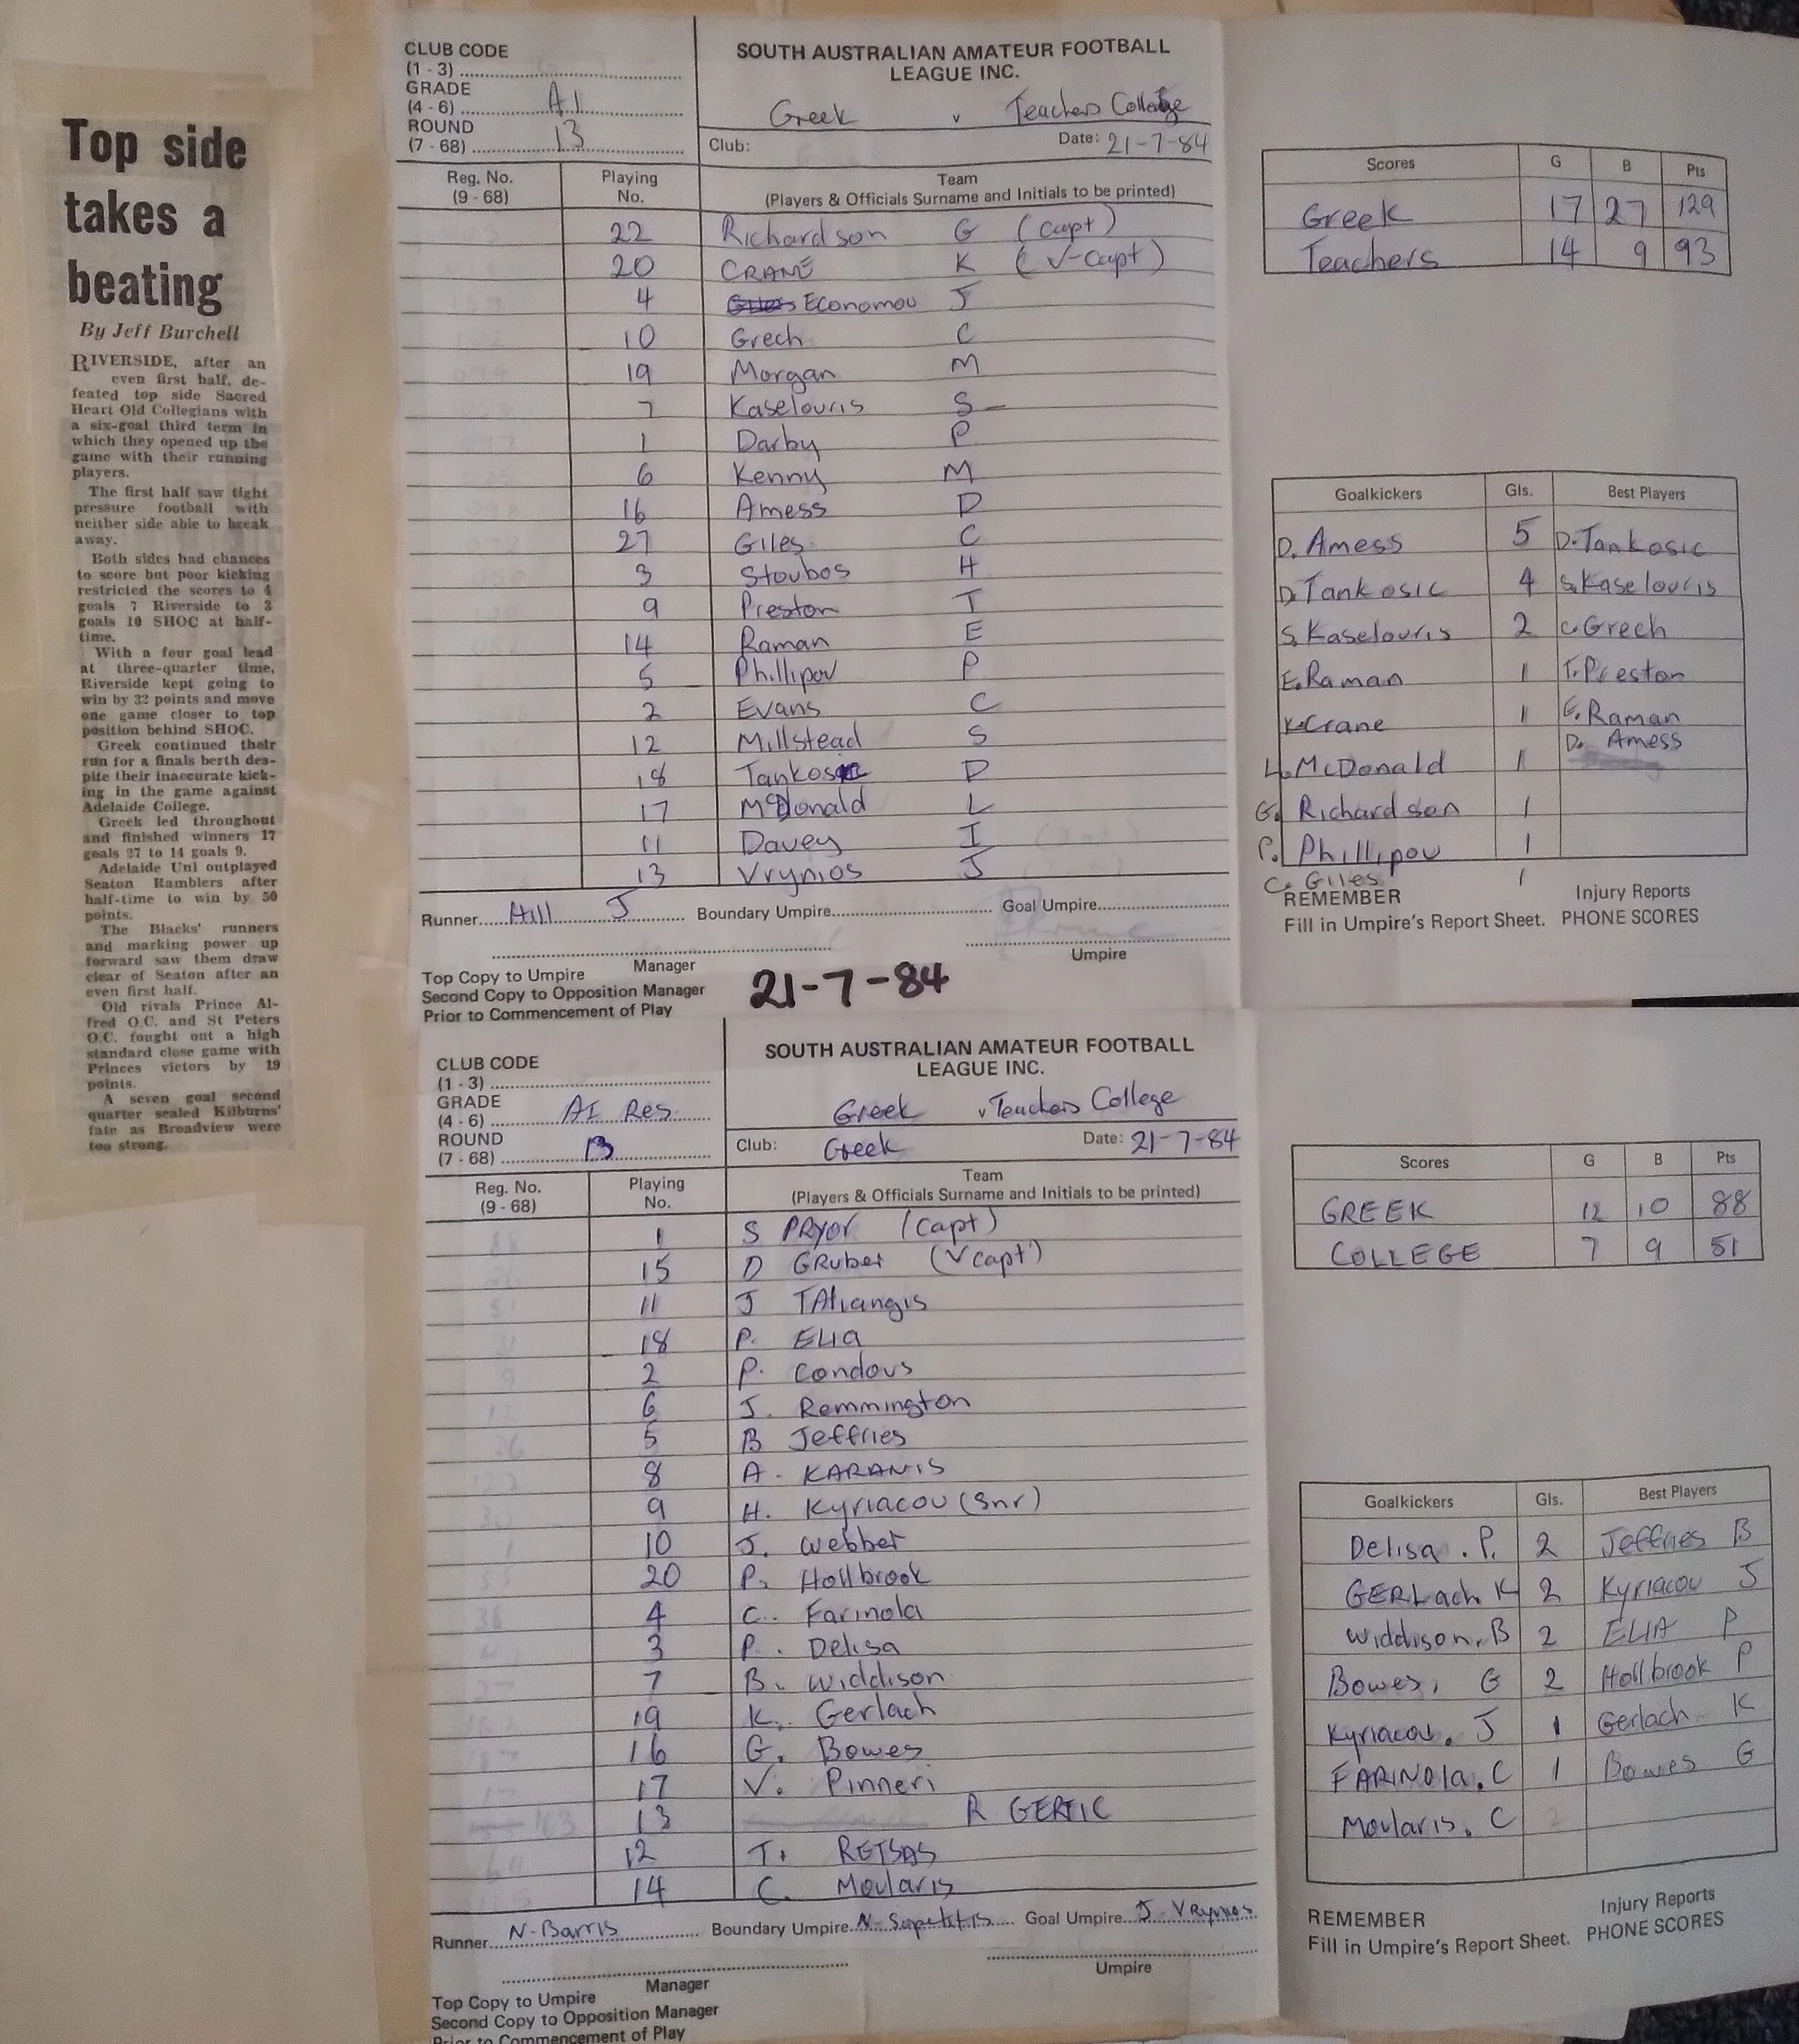 Top side
takes a
beating
By Jeff Burchell
RIVERSIDE, after an
even first half, de-
feated top side Sacred
Heart Old Collegians with
a six-goal third term in
which they opened up the
game with their running
players.
The first half saw tight
pressure football with
neither side able to break
away.
Both sides had chances
to score but poor kicking
restricted the scores to 4
goals 7 Riverside to 3
goals 10 SHOC at half-
time.
With a four goal lead
at three-quarter time,
Riverside kept going to
win by 32 points and move
one game closer to top
position behind SHOC.
Greek continued their
run for a finals berth des-
pite their inaccurate kick-
ing in the game against
Adelaide College.
Greek led throughout
and finished winners 17
goals 27 to 14 goals 9.
Adelaide Uni outplayed
Seaton Ramblers after
half-time to win by 50
points.
The Blacks' runners
and marking power up
forward saw them draw
clear of Seaton after an
even first half.
Old rivals Prince Al-
fred O.C. and St Peters
O.C. fought out a high
standard close game with
Princes victors by 19
points.
A seven goal second
quarter sealed Kilburns'
fate as Broadview were
too strong.
CLUB CODE
(1 - 3)
GRADE
(4 - 6) A1
ROUND
(7 - 68) 13
SOUTH AUSTRALIAN AMATEUR FOOTBALL
LEAGUE INC.
Greek v Teachers College
Club: Date: 21-7-84
Reg. No. (9 - 68) Playing No. Team
(Players & Officials Surname and Initials to be printed)
22 Richardson G (Capt)
20 CRANE K (V-Capt)
4 Economou J
10 Grech C
19 Morgan M
7 Kaselouris S
1 Darby P
6 Kenny M
16 Amess D
27 Giles C
3 Stoubos H
9 Preston T
14 Raman E
5 Phillipou P
2 Evans C
12 Millstead S
18 Tankosic D
17 McDonald L
11 Davey I
13 Vrynios J
Runner Hill J Boundary Umpire Goal Umpire
Manager Umpire
Top Copy to Umpire
Second Copy to Opposition Manager
Prior to Commencement of Play
21-7-84
Scores G B Pts
Greek 17 27 129
Teachers 14 9 93
Goalkickers Gls. Best Players
D. Amess 5 D. Tankosic
D. Tankosic 4 S. Kaselouris
S. Kaselouris 2 C. Grech
E. Raman 1 T. Preston
K. Crane 1 E. Raman
D. Amess
L. McDonald 1
G. Richardson 1
P. Phillipou 1
C. Giles 1
REMEMBER Injury Reports
Fill in Umpire's Report Sheet. PHONE SCORES
CLUB CODE
(1 - 3)
GRADE
(4 - 6) A1 Res.
ROUND
(7 - 68) 13
SOUTH AUSTRALIAN AMATEUR FOOTBALL
LEAGUE INC.
Greek v Teachers College
Club: Greek Date: 21-7-84
Reg. No. (9 - 68) Playing No. Team
(Players & Officials Surname and Initials to be printed)
1 S PRYOR (Capt)
15 D GRuber (V capt)
11 J TAliangis
18 P. ELIA
2 P. Condous
6 J. Remmington
5 B Jeffries
8 A. KARANIS
9 H. Kyriacou (Snr)
10 J. Webber
20 P. Hollbrook
4 C. Farinola
3 P. Delisa
7 B. Widdison
19 K. Gerlach
16 G. Bowes
17 V. Pinneri
13 R GERTIC
12 T. RETSAS
14 C. Moularis
Runner N. Barris Boundary Umpire Goal Umpire J. Vrynios
Manager Umpire
Top Copy to Umpire
Second Copy to Opposition Manager
Prior to Commencement of Play
Scores G B Pts
GREEK 12 10 88
COLLEGE 7 9 51
Goalkickers Gls. Best Players
Delisa . P. 2 Jeffries B
GERLach K 2 Kyriacou J
Widdison. B 2 ELIA P
Bowes, G 2 Hollbrook P
Kyriacou. J 1 Gerlach K
FARINOla. C 1 Bowes G
Moularis. C 2
REMEMBER Injury Reports
Fill in Umpire's Report Sheet. PHONE SCORES